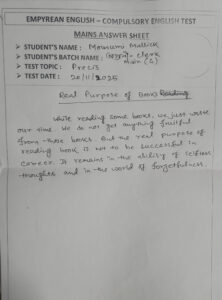 EMPYREAN ENGLISH – COMPULSORY ENGLISH TEST
MAINS ANSWER SHEET
➢ STUDENT'S NAME : Moumumi Mullick
➢ STUDENT'S BATCH NAME : Clerk
Main (G)
➢ TEST TOPIC : Precis
➢ TEST DATE : 20/11/2025
Real Purpose of Books Reading
While reading some books, we just waste
our time. We do not get anything fruitful
from those books. But the real purpose of
reading book is not to be successful in
career. It remains in the ability of selfless
thoughts and in the world of forgetfulness.